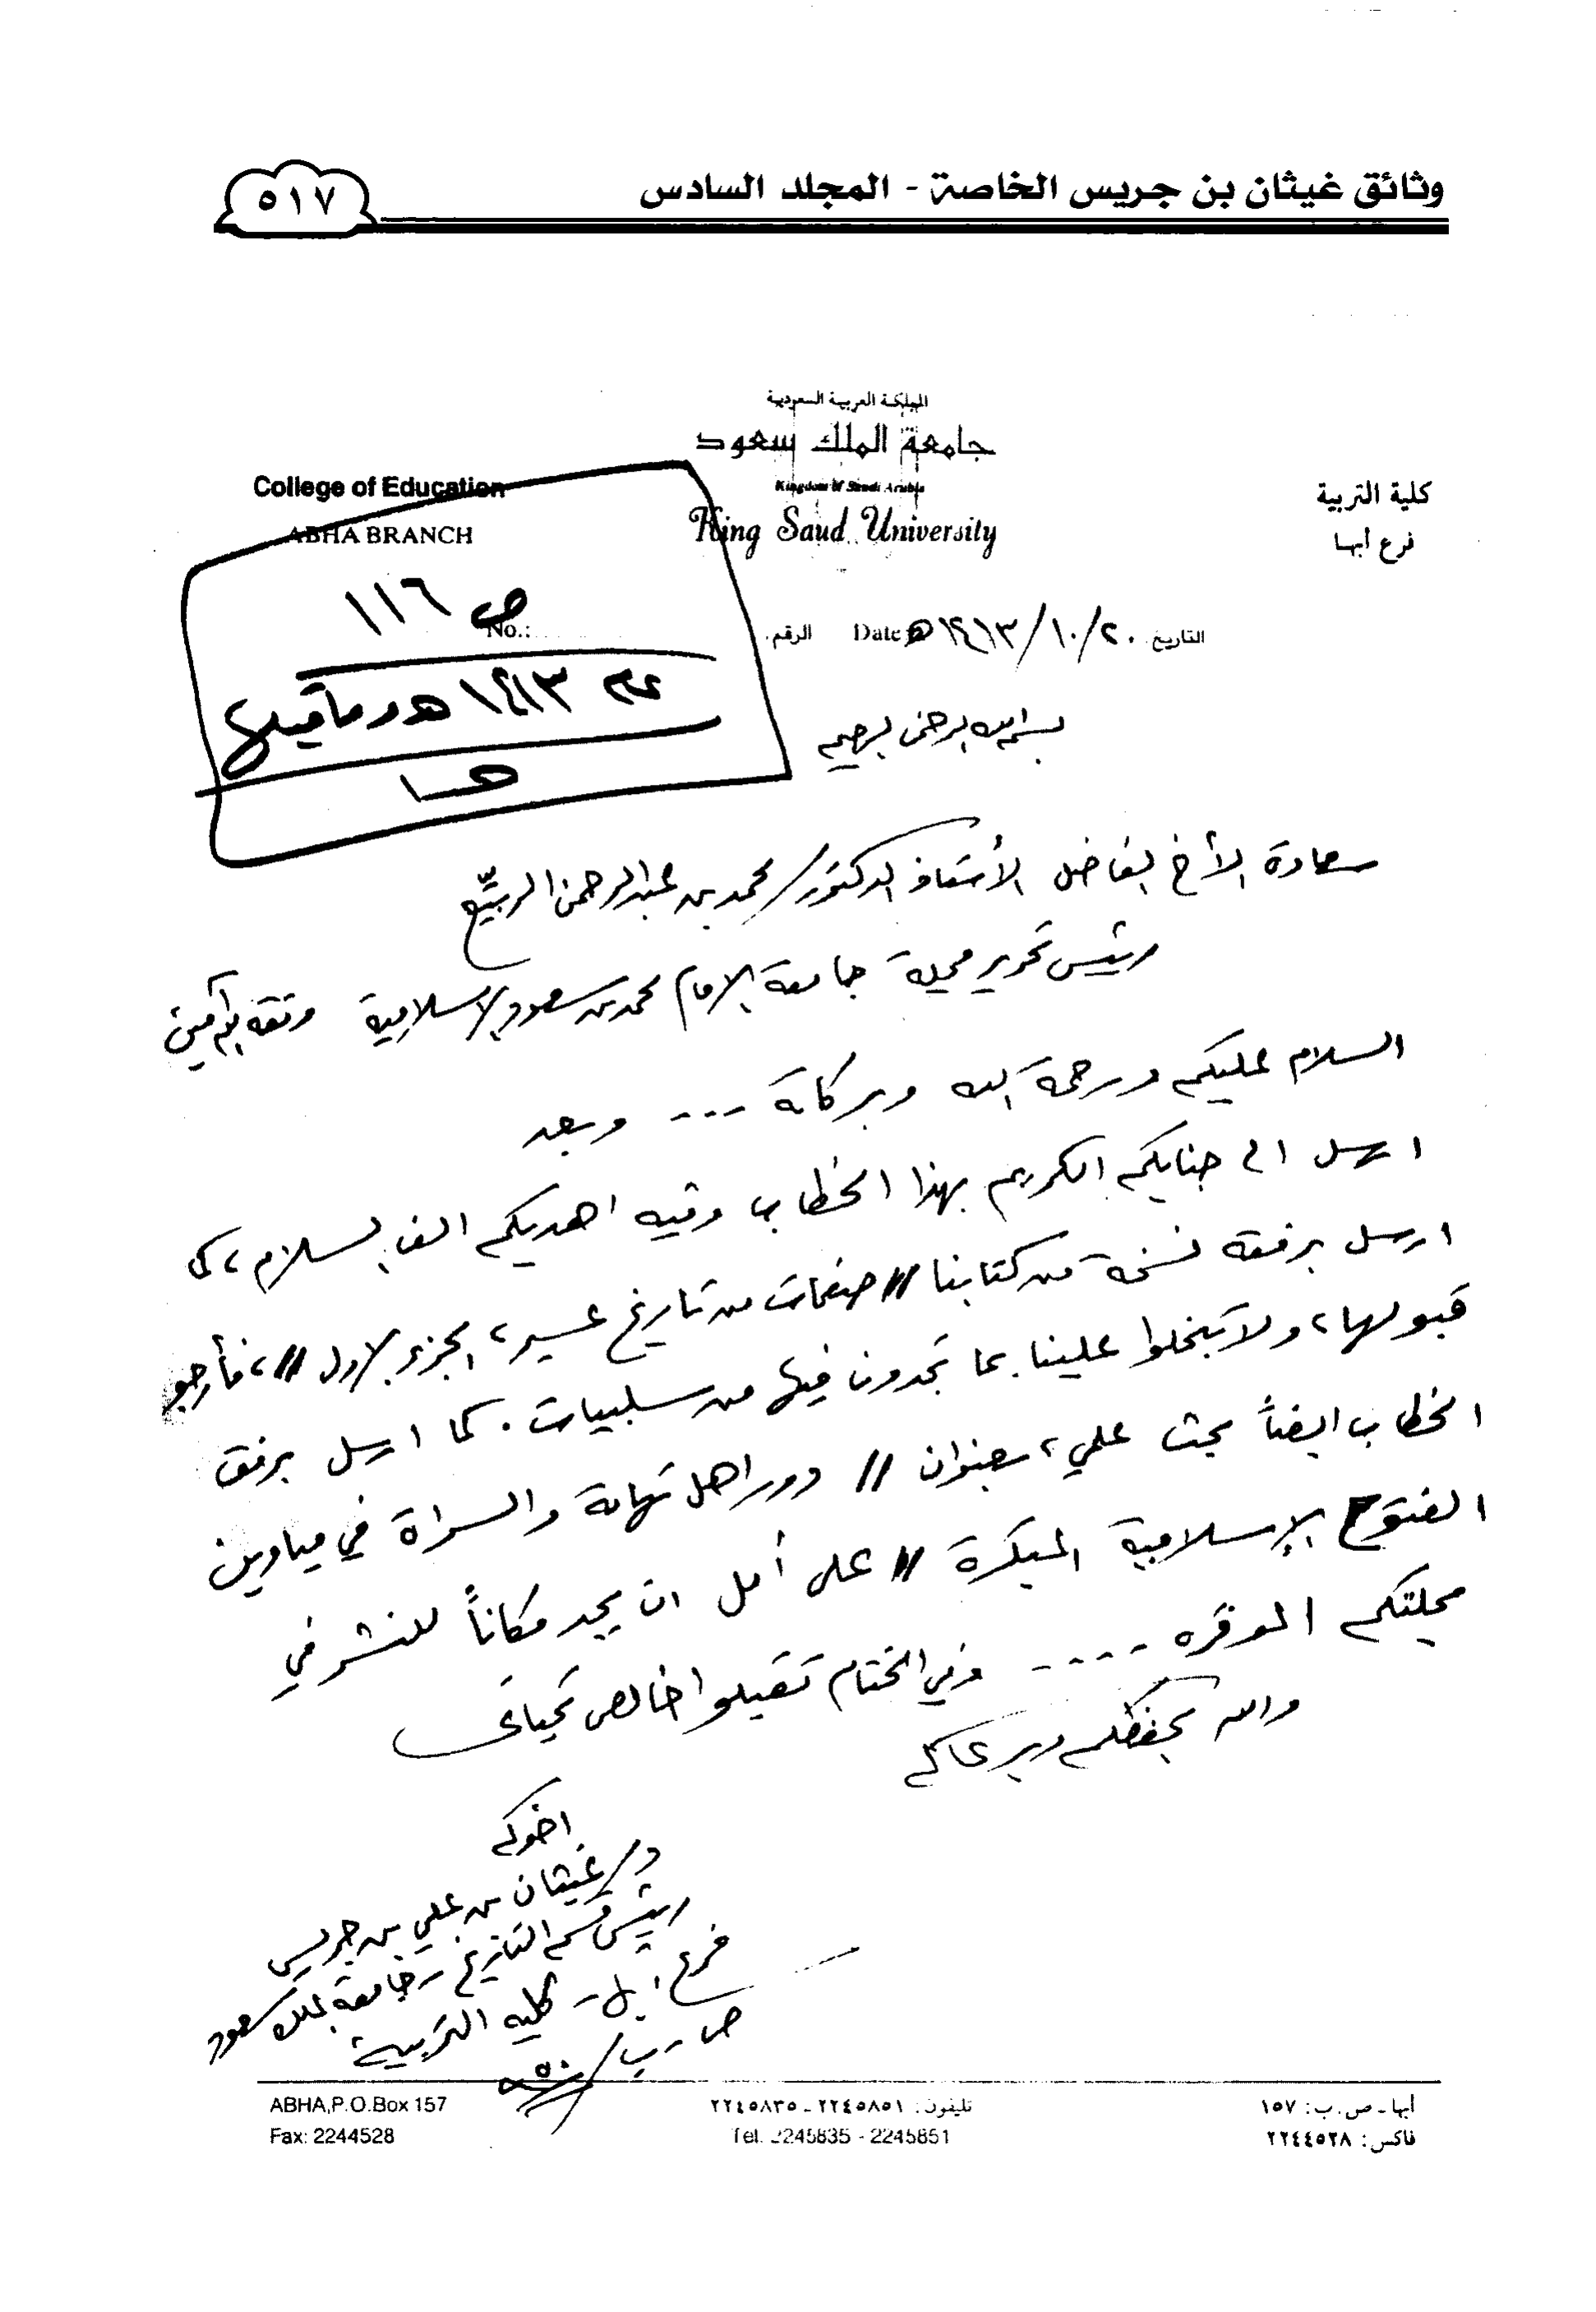 وثائق غيثان بن جريس الخاصة - المجلد السادس
٥١٧
المملكة العربية السعودية
جامعة الملك سعود
Kingdom of Saudi Arabia
King Saud University
كلية التربية
فرع أبها
College of Education
ABHA BRANCH
التاريخ ٢٠/١٠/١٤١٣هـ Date
الرقم No.:
ص ١١٦
١٤١٣هـ وما قبلها
بسم الله الرحمن الرحيم
سعادة الأخ الفاضل الأستاذ الدكتور/ محمد بن عبدالرحمن الربيّع
رئيس تحرير مجلة جامعة الإمام محمد بن سعود الإسلامية وفقه الله آمين
السلام عليكم ورحمة الله وبركاته ... وبعد
ارسل الى جنابكم الكريم بهذا الخطاب وفيه اهديكم الف السلام، كما
ارسل برفقه نسخة من كتابنا // صفحات من تاريخ عسير، الجزء الأول //، فأرجو
قبولها، ولا تبخلوا علينا بما تجدون فيها من سلبيات. كما ارسل برفق
الخطاب ايضاً بحث علمي، بعنوان // دور اهل تهامة والسراة في ميادين
الفتوح الإسلامية المبكرة // على أمل ان يجد مكاناً للنشر في
مجلتكم الموقره .... وفي الختام تقبلوا خالص تحياتي
والله يحفظكم ويرعاكم
اخوكم
د/ غيثان بن علي بن جريس
رئيس قسم التاريخ - جامعة الملك سعود
فرع ابها - كلية التربية
ص.ب/
أبها - ص.ب: ١٥٧
فاكس: ٢٢٤٤٥٢٨
تليفون: ٢٢٤٥٨٥١ - ٢٢٤٥٨٣٥
Tel. 2245835 - 2245851
ABHA,P.O.Box 157
Fax: 2244528